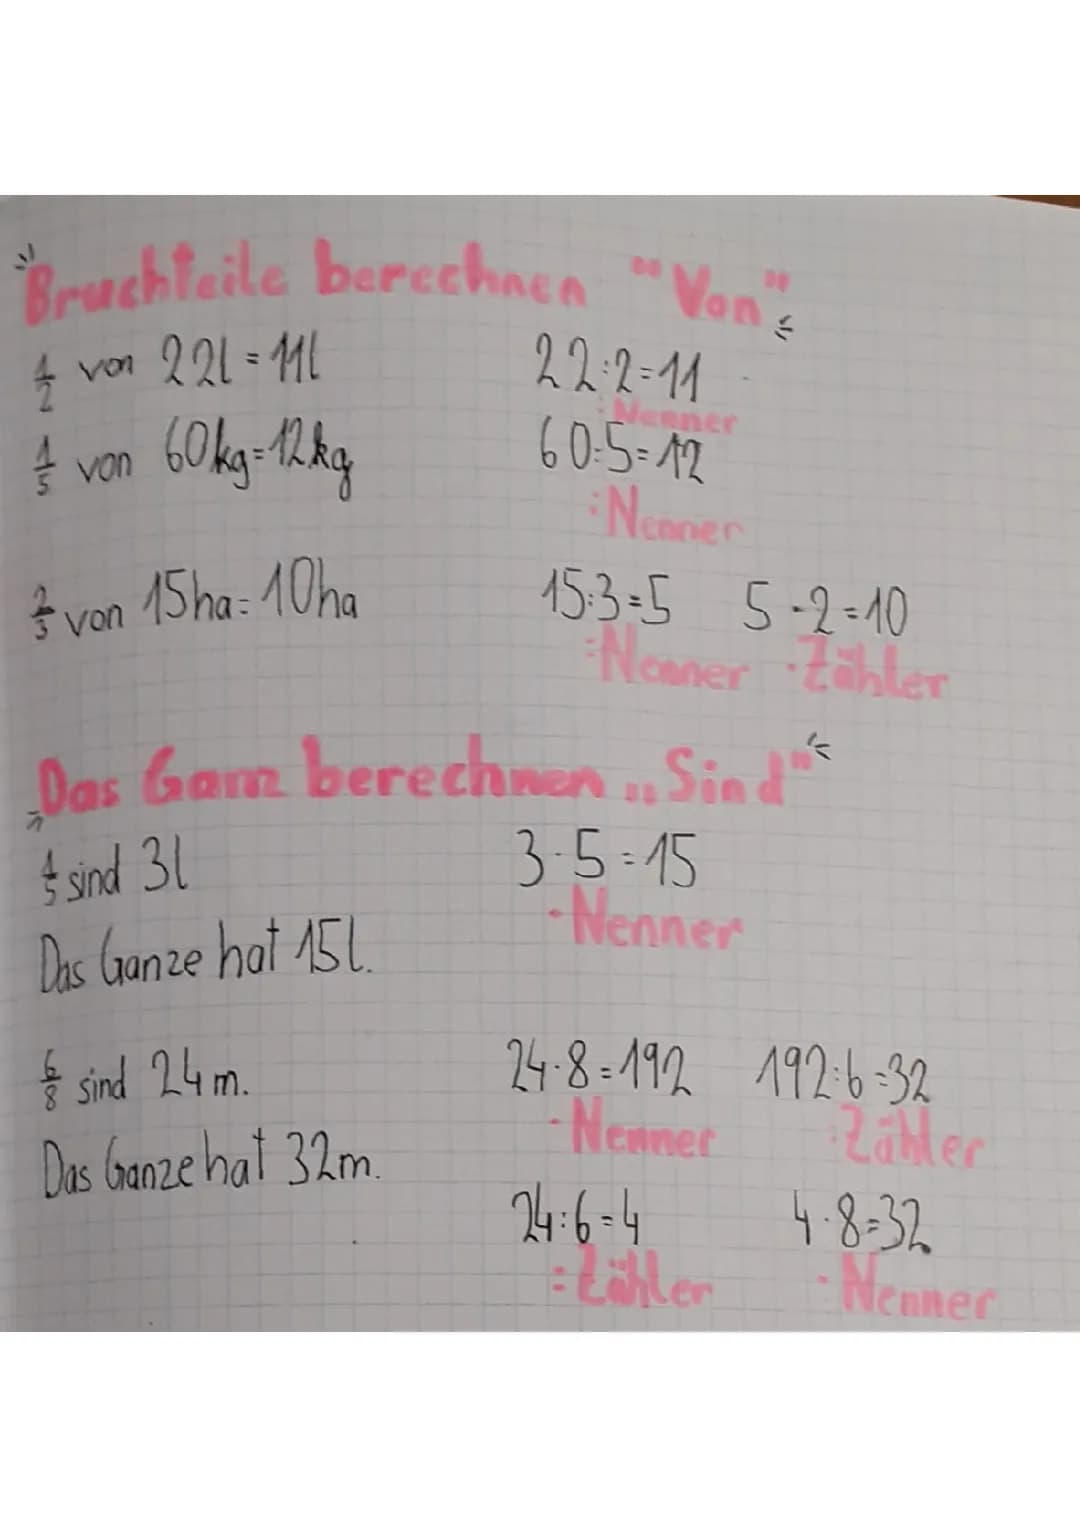 "Bruchteile berechnen "Von"
1/2 von 22l = 11l 22:2=11
:Nenner
1/5 von 60kg=12kg 60:5=12
:Nenner
2/3 von 15ha=10ha 15:3=5 5·2=10
:Nenner ·Zähler
Das Ganz berechnen „Sind"
1/5 sind 3l 3·5=15
·Nenner
Das Ganze hat 15l.
6/8 sind 24m. 24·8=192 192:6=32
·Nenner :Zähler
Das Ganze hat 32m.
24:6=4 4·8=32
:Zähler ·Nenner